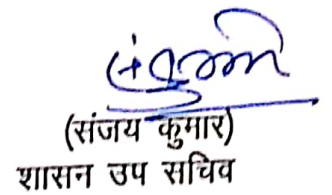 (संजय कुमार)
शासन उप सचिव